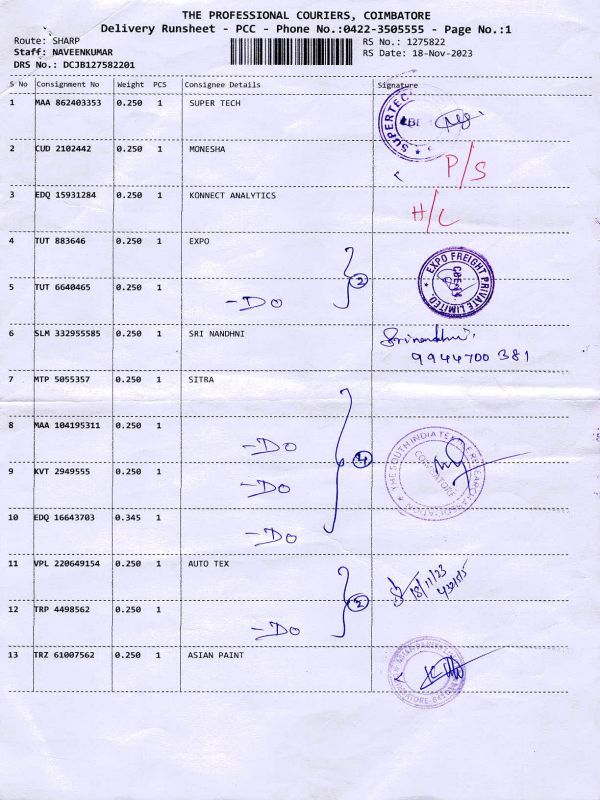 THE PROFESSIONAL COURIERS, COIMBATORE
Delivery Runsheet - PCC - Phone No.:0422-3505555 - Page No.:1
Route: SHARP
RS No.: 1275822
Staff: NAVEENKUMAR
RS Date: 18-Nov-2023
DRS No.: DCJB127582201
S No Consignment No Weight PCS Consignee Details Signature
1 MAA 862403353 0.250 1 SUPER TECH
SUPERTEC
2 CUD 2102442 0.250 1 MONESHA P/S
3 EDQ 15931284 0.250 1 KONNECT ANALYTICS H/C
4 TUT 883646 0.250 1 EXPO
EXPO FREIGHT PRIVATE LIMITED
5 TUT 6640465 0.250 1 -DO 2
6 SLM 332955585 0.250 1 SRI NANDHNI Srinandhni
9944700381
7 MTP 5055357 0.250 1 SITRA
8 MAA 104195311 0.250 1 -DO
THE SOUTH INDIA TEXTILE RESEARCH ASSOCIATION
COIMBATORE
9 KVT 2949555 0.250 1 -DO 4
10 EDQ 16643703 0.345 1 -DO
11 VPL 220649154 0.250 1 AUTO TEX 18/11/23
12 TRP 4498562 0.250 1 -DO 2
13 TRZ 61007562 0.250 1 ASIAN PAINT